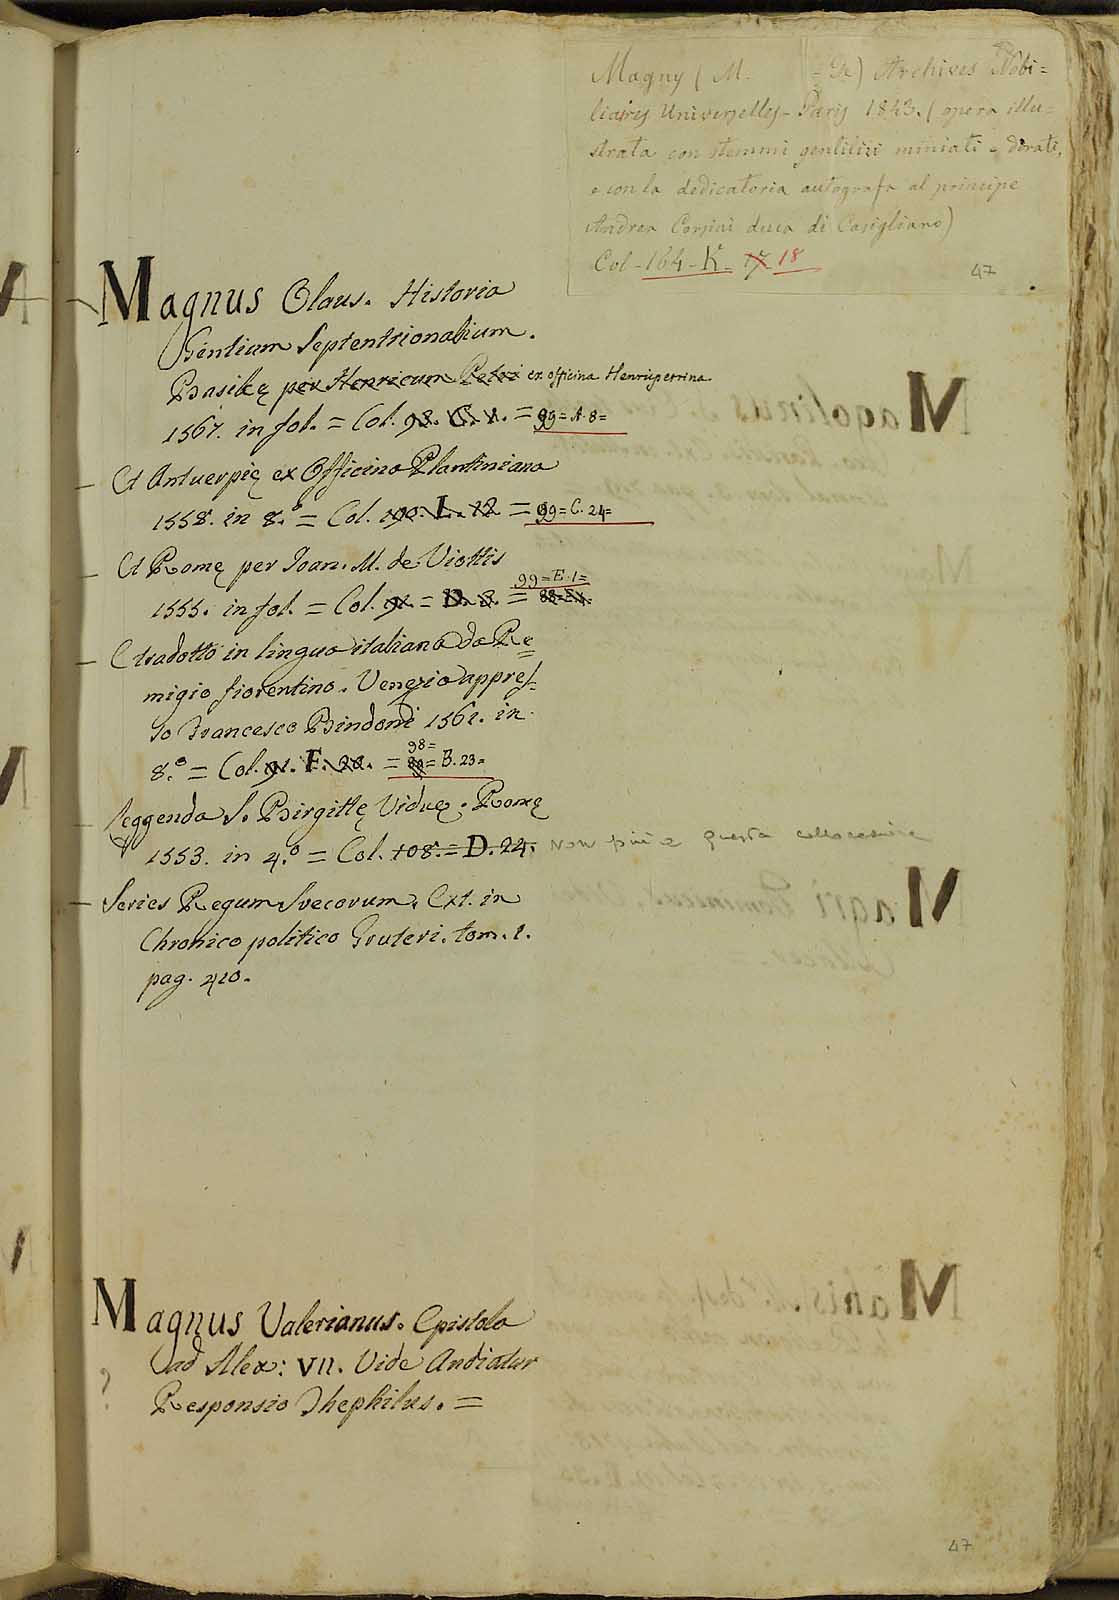 Magny (M. = De) Archives Nobi=
liaires Universelles - Paris 1843. (opera illu=
strata con stemmi gentilizi miniati e dorati,
e con la dedicatoria autografa al principe
Andrea Corsini duca di Casigliano)
Col - 164 - K - 17 18
47
Magnus Olaus. Historia
Gentium Septentrionalium.
Basileę per Henricum Petri ex officina Henricpetrina
1567. in fol. = Col. 98. C. 1. = 99 = A. 8 =
Et Antuerpię ex Officina Plantiniana
1558. in 8.º = Col. 100. L. 12 = 99 = C. 24 =
Et Romę per Joan. M. de Viottis
99 = E. 1 =
1555. in fol. = Col. 91. = D. 8. =
E tradotto in lingua italiana da Re=
migio fiorentino. Venezia appres=
so Francesco Bindoni 1561. in
98 =
8.º = Col. 91. F. 20. = = B. 23 =
Leggenda S. Birgittę Viduę. Romę
1553. in 4.º = Col. 108. = D. 24. Non più a questa collocazione
Series Regum Svecorum. Ext. in
Chronico politico Gruteri. tom. 1.
pag. 410.
Magnus Valerianus. Epistola
ad Alex: VII. Vide Andiatur
? Responsio Thephilus. =
47